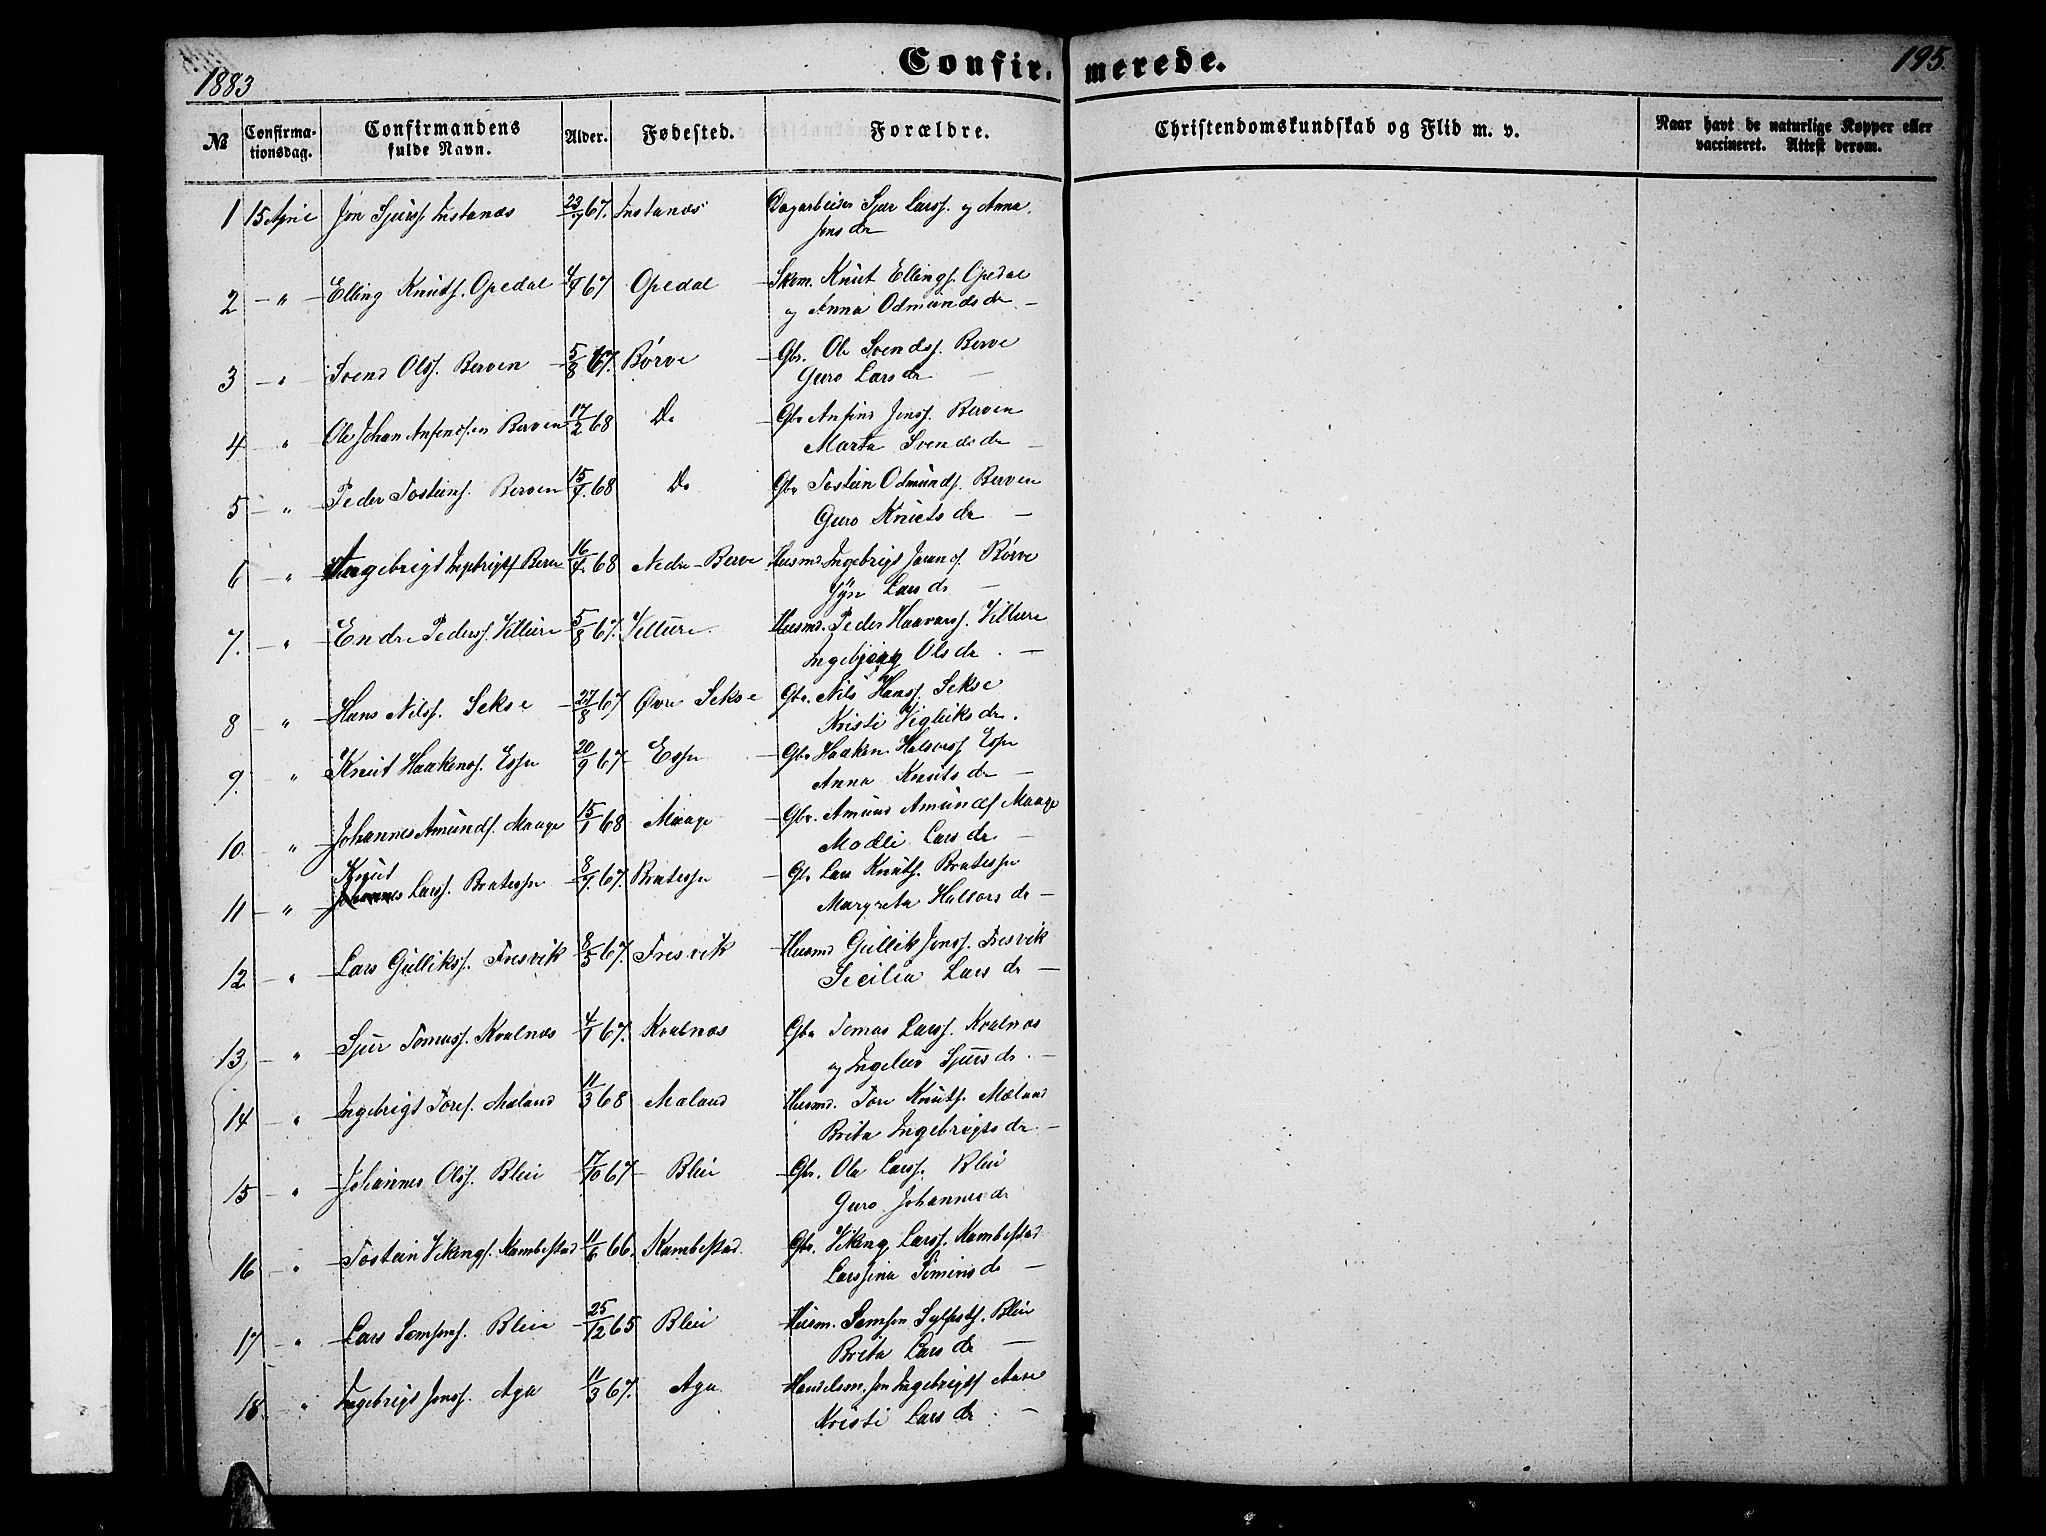 1883 Confir. merede. 195.
№ Confirma- Confirmandens Alder. Fødested. Forældre. Christendomskundskab og Flid m. v. Naar havt de naturlige Kopper eller
tionsdag. fulde Navn. vaccineret. Attest derom.
1 15 April Jon Sjurss. Instanæs 67. Instanæs Dagarbeider Sjur Larss. og Anna
Jonsdr
2 — " — Elling Knuts. Opedal 67 Opedal — Skom. Knut Ellings. Opedal
og Anna Odmundsdr —
3 — " — Svend Olss. Berven — 5/8 67. Børve — Gbr. Ole Svends. Berve
Guro Larsdr —
4 — " Ole Johan Anfinssen Berven 17/2 68 Do — Gbr Anfind Jonss. Berven
Marta Svendsdr —
5 — " — Peder Tosteins. Berven 15/4 68 Do Gbr Tostein Odmunds. Berven
Guro Knutsdr —
6 — " Ingebrigts Berve 16/4 68 Nedre Berve Husmd. Ingebrigt Børve
Larsdr —
7. — " — Endre Peders. Villure 5/8 67. Villure. Husmd. Peder Haavars. Villure
Ingebjørg Olsdr. —
8 " — Hans Nilss. Sekse — 27/8 67 Øvre Sekse Gbr. Nils Hanss. Sekse
Kristi Vigleiksdr.
9. " — Knut Haakenss. Espe 20/9 67 — Espe — Gbr Haaken Halvorss Espe
Anna Knutsdr —
10. " — Johannes Amunds. Maage 15/1 68 — Maage — Gbr. Amund Amunds Maage
Modli Larsdr —
Knut
11 — " — Johannes Larss. Bratespe — 67. Bratespe — Gbr Lars Knuts. Bratespe
Margreta Halvorsdr —
12 — " Lars Gulliks. Tresvik 8/5 67. Tresvik — Husmd Gullik Jonss. Tresvik
Secilia Larsdr —
13 — " — Sjur Tomass. Kvalnæs 4/1 67. Kvalnæs Gbr Tomas Larss. Kvalnæs
og Sjursdr. —
14 " — Ingebrigt Tores. Mæland 11/3 68 — Mæland Husmd. Tore Knuts. Mæland
Brita Ingebrigtsdr. —
15 — " — Johannes Olss. Bleie 17/10 67 — Bleie — Gbr. Ole Larss. Bleie
Guro Johannesdr
16 — " — Tostein Vikings. Kambestad 11/6 66. Kambestad. Gbr. Viking Larss. Kambestad
—
17 — " — Lars Samsons. Bleie — 25/12 65 Bleie — Husm. Samson Bleie
Brita Larsdr —
18. — " — Ingebrigt Jonss. Aga 11/3 67. Aga. — Handelsm. Jon Ingebrigts
Kristi Larsdr. —